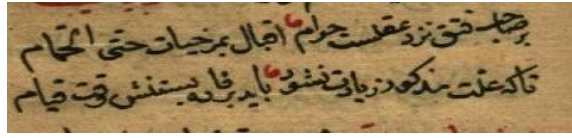 بر صاحب فتق نزد عقلست حرام اقبال بمرخیات حتی الحمام
تا که علت مذکور زیادت نشود باید برفاده بستنش وقت قیام